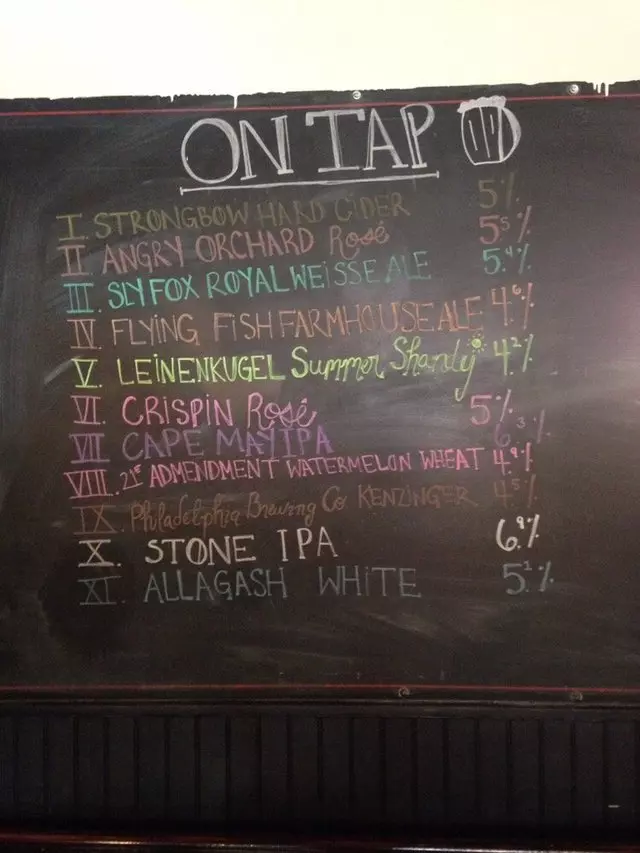 ON TAP
I. STRONGBOW HARD CIDER 5%
II ANGRY ORCHARD Rosé 5.5%
III. SLY FOX ROYAL WEISSE ALE 5.4%
IV FLYING FISH FARMHOUSE ALE 4.6%
V. LEINENKUGEL Summer Shandy 4.2%
VI. CRISPIN Rosé 5%
VII CAPE MAY IPA 6.3%
VIII. 21st ADMENDMENT WATERMELON WHEAT 4.9%
IX. Philadelphia Brewing Co KENZINGER 4.5%
X. STONE IPA 6.9%
XI. ALLAGASH WHITE 5.1%